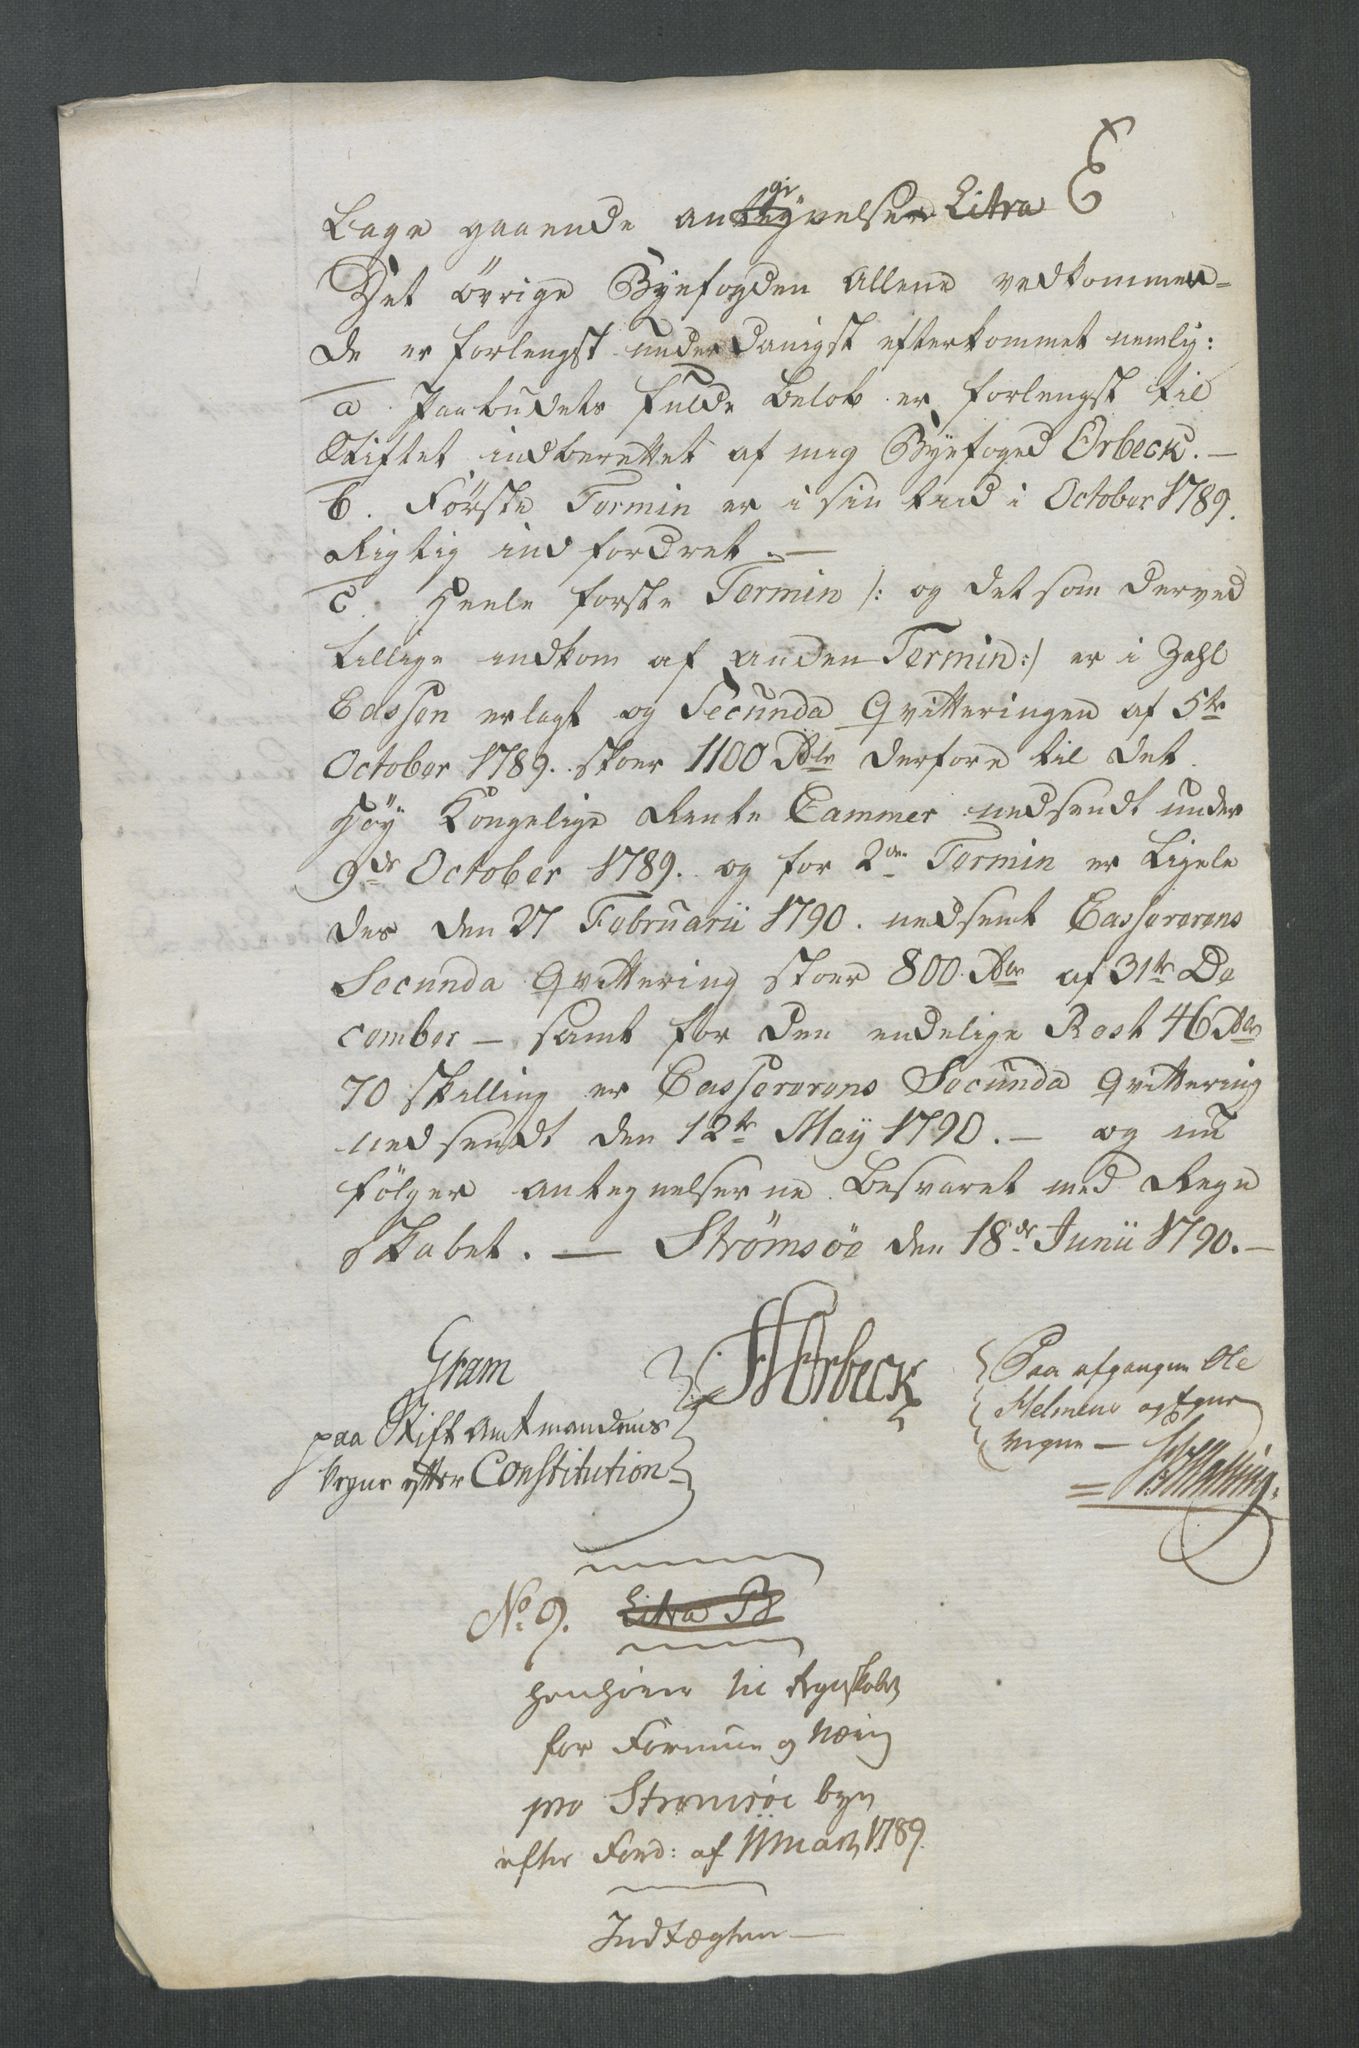 Bage gaaende angivelser Litra E
Det övrige Byefogden Allene vedkommen=
de er forlengst underdanigst efterkommet nemlig:
a. Paabudets fulde Beløb er forlengst til
Stiftet indberettet af mig Byefoged Ørbeck. —
b. Første Termin er i sin tiid i October 1789.
Rigtig indfordret. —
c. Heele forste Termin /: og det som derved
tillige indkom af anden Termin :/ er i Zahl
Cassen erlagt og Secunda Qvitteringen af 5te
October 1789. stoer 1100 Rdlr derfore til det
Høy Kongelige Rente Cammer nedsendt under
9de October 1789. og for 2den Termin er Ligele
des den 27 Februarii 1790. nedsent Casserarens
Secunda Qvittering stoer 800 Rdlr af 31te De
cember — samt for den endelige Rest 46 Rdlr
70 skilling er Casserarens Secunda Qvittering
nedsendt den 12te Maij 1790. — og nu
følger antegnelserne Besvaret med Regn
skabet. — Strømsöe den 18de Junii 1790. —
Gram
paa Stift Amtmandens
Vegne efter Constitution
Ørbeck
Paa afgangne Ole
og Egne
vegne —
No. 9. Litra B
henhörer til Regnskabet
for Formue og Næring
pro Strømsöe bye
efter Ford: af 11 Marty 1789.
Indtægten —